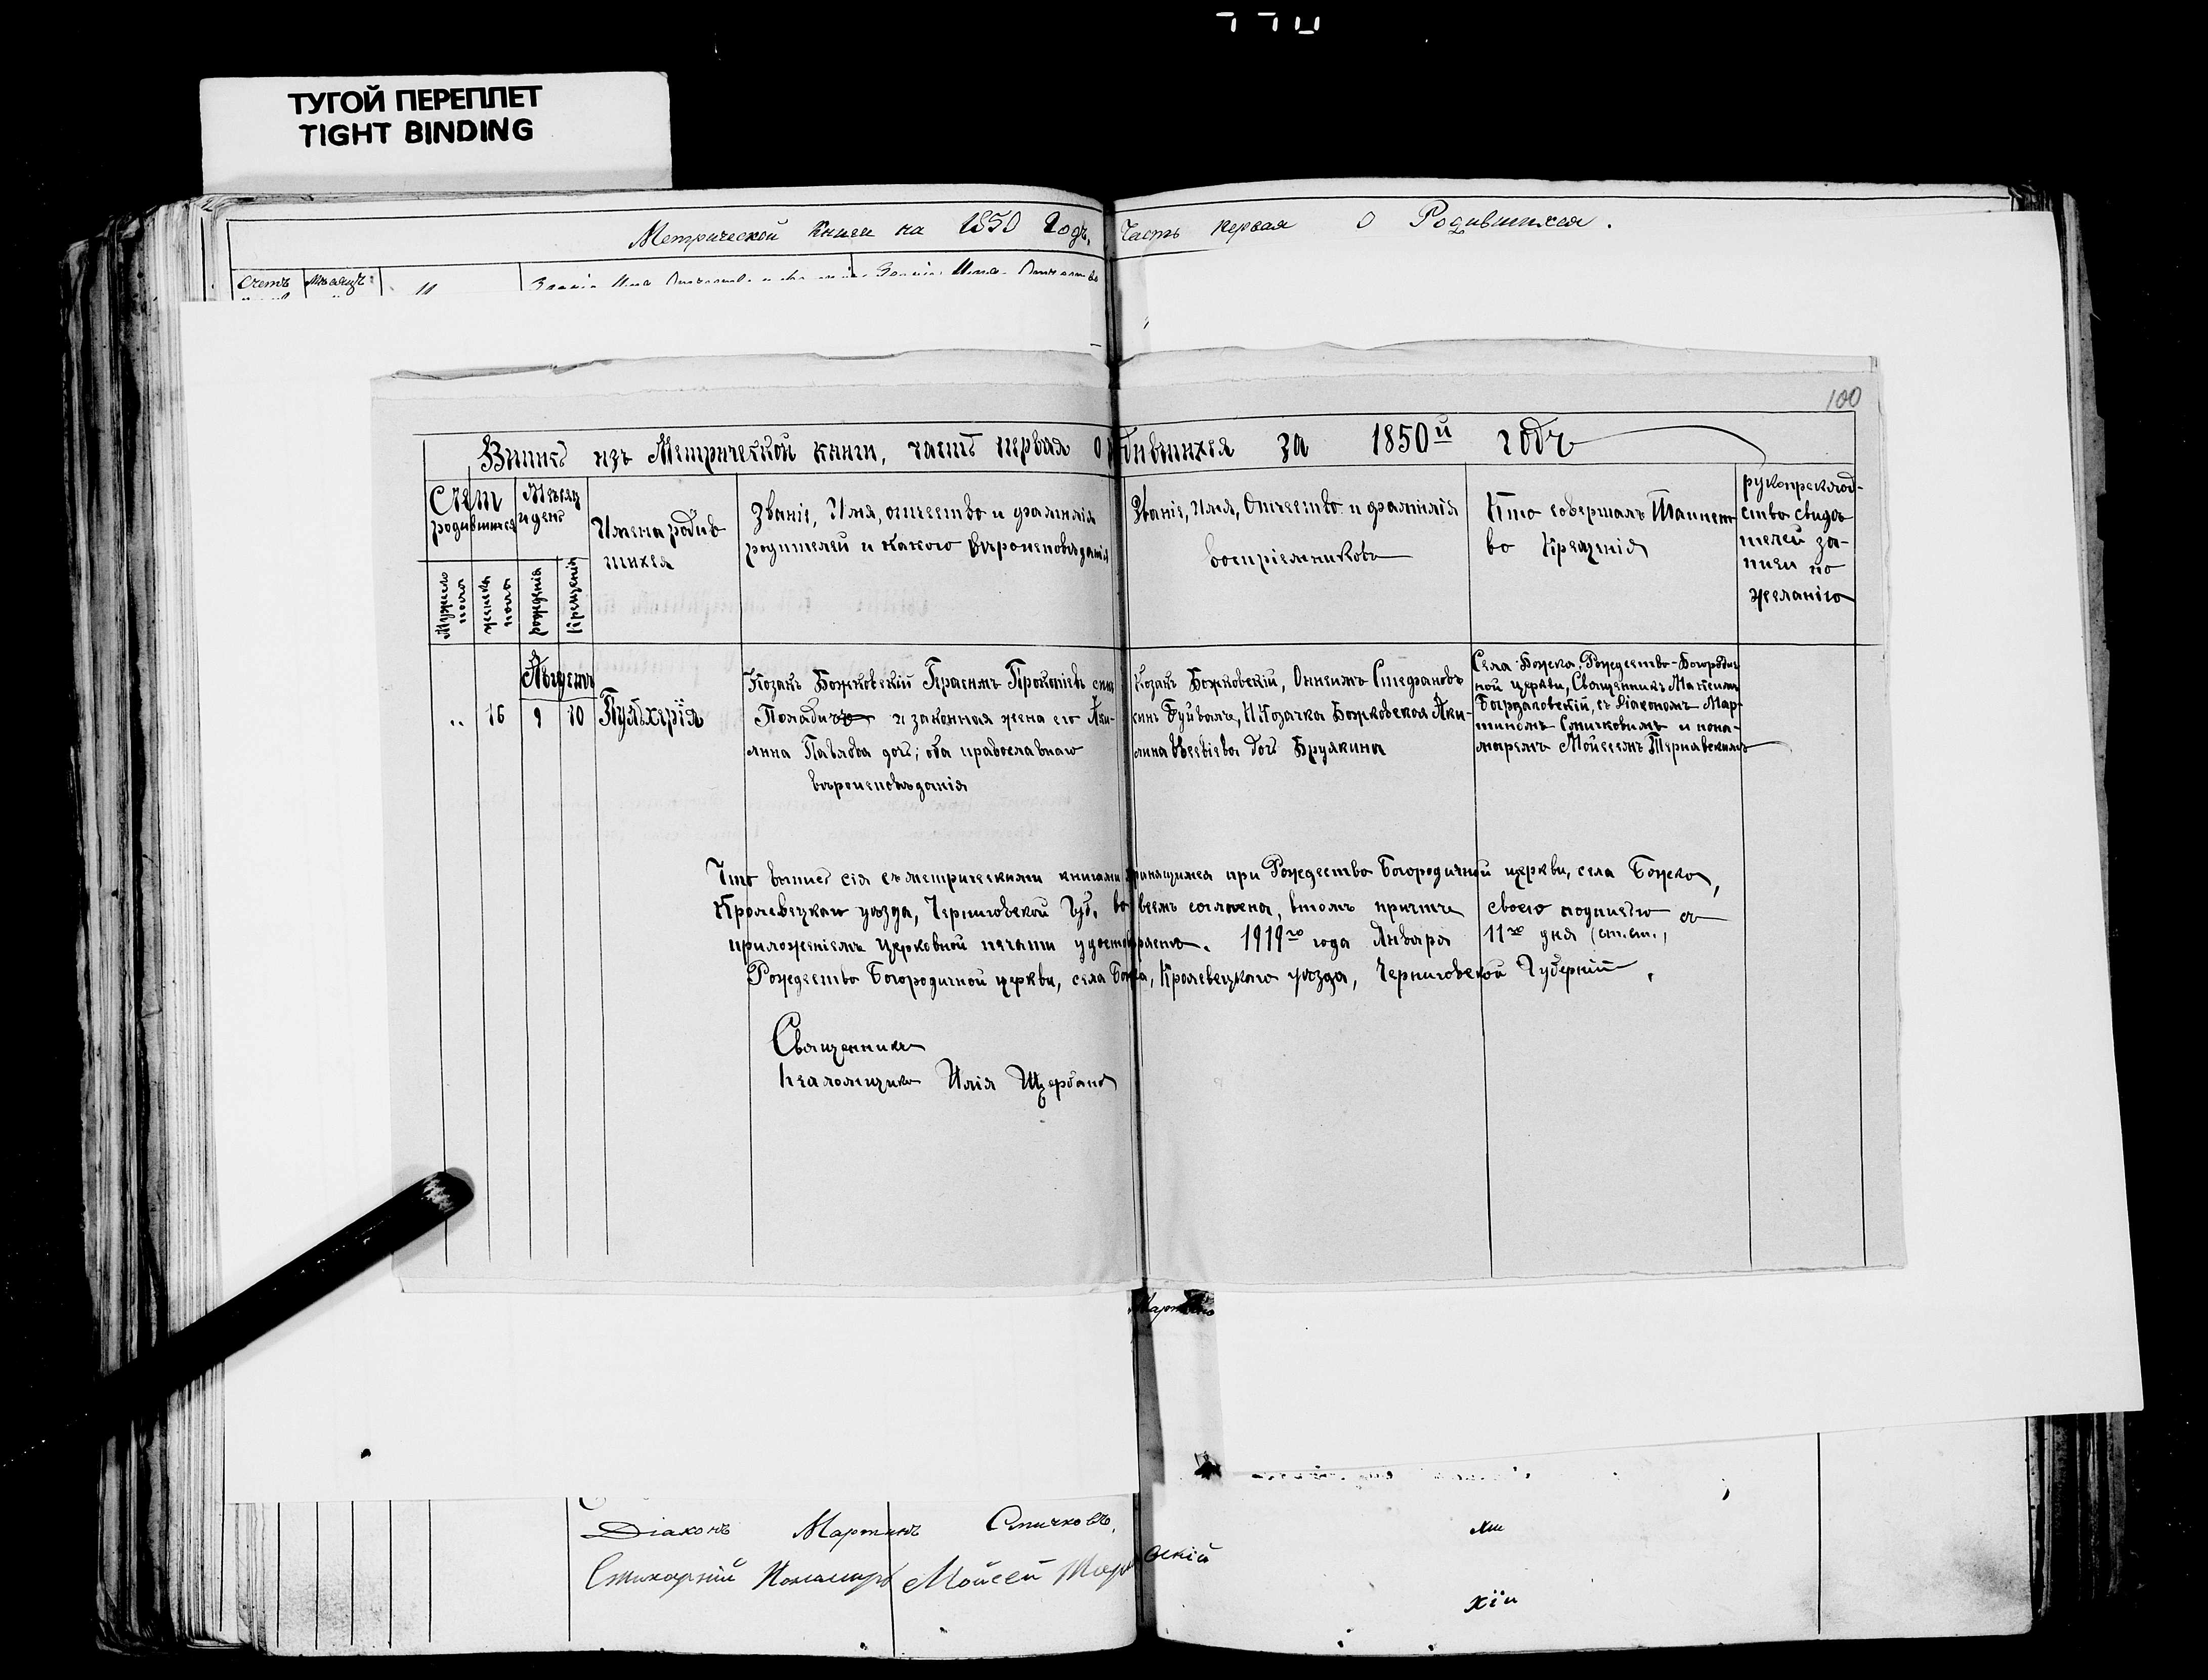 ТУГОЙ ПЕРЕПЛЕТ
TIGHT BINDING
Метрической Книги на 1850 Годъ, Часть Первая О Родившихся.
Счетъ
Мѣсяцъ
Званіе Имя Отчество
Званіе Имя Отчество
100
Випись изъ Метрической книги, часть первая о дившихся за 1850й годъ
Счет родившихся
Мѣсяц и день
Имена родив
шихся
Званіе, Имя, отчество и фамилія
родителей и какого вѣроисповѣданія
Званіе, Имя, Отчество и фамилія
воспріемниковъ
Кто совершалъ Таинст
во Крещенія
рукоприклад-
ство свидѣ
телей за-
писи по
желанію
Мужеск пола
женска пола
рожденія
Крещенія
Августъ
.. 16 9 10 Пульхерія
Козакъ Божковскій Герасимъ Прокопіевъ сынъ
и законная жена его Аки-
лина Павлова дочь; оба православнаго
вѣроисповѣданія
Козакъ Божковскій, Онисимъ Стефановъ
синъ Буйвалъ, И Козачка Божковская Аки-
лина Евсевіева дочь Брулкина
Села Божка, Рождество-Богородич
ной церкви, Священникъ Максимъ
съ Діакономъ Мар-
тиномъ Спичковимъ и пона-
маремъ Мойсеемъ Тернавскимъ
Что випись сія съ метрическими книгами хранящимися при Рождество Богородичной церкви, села Божка,
Кролевецкаго уѣзда, Черниговской Губ. во всемъ согласна, втомъ причтъ своею подписью съ
приложеніемъ Церковной печати удостовѣряетъ. 1919го года Января 11го дня (ст. ст.)
Рождество Богородичной церкви, села Божка, Кролевецкаго уѣзда, Черниговской Губерніи.
Священникъ
Псаломщикъ Илія Щербань
Діаконъ Мартинъ Спичковъ,
Стихарній Пономарь Мойсей Тер вскій
хіи